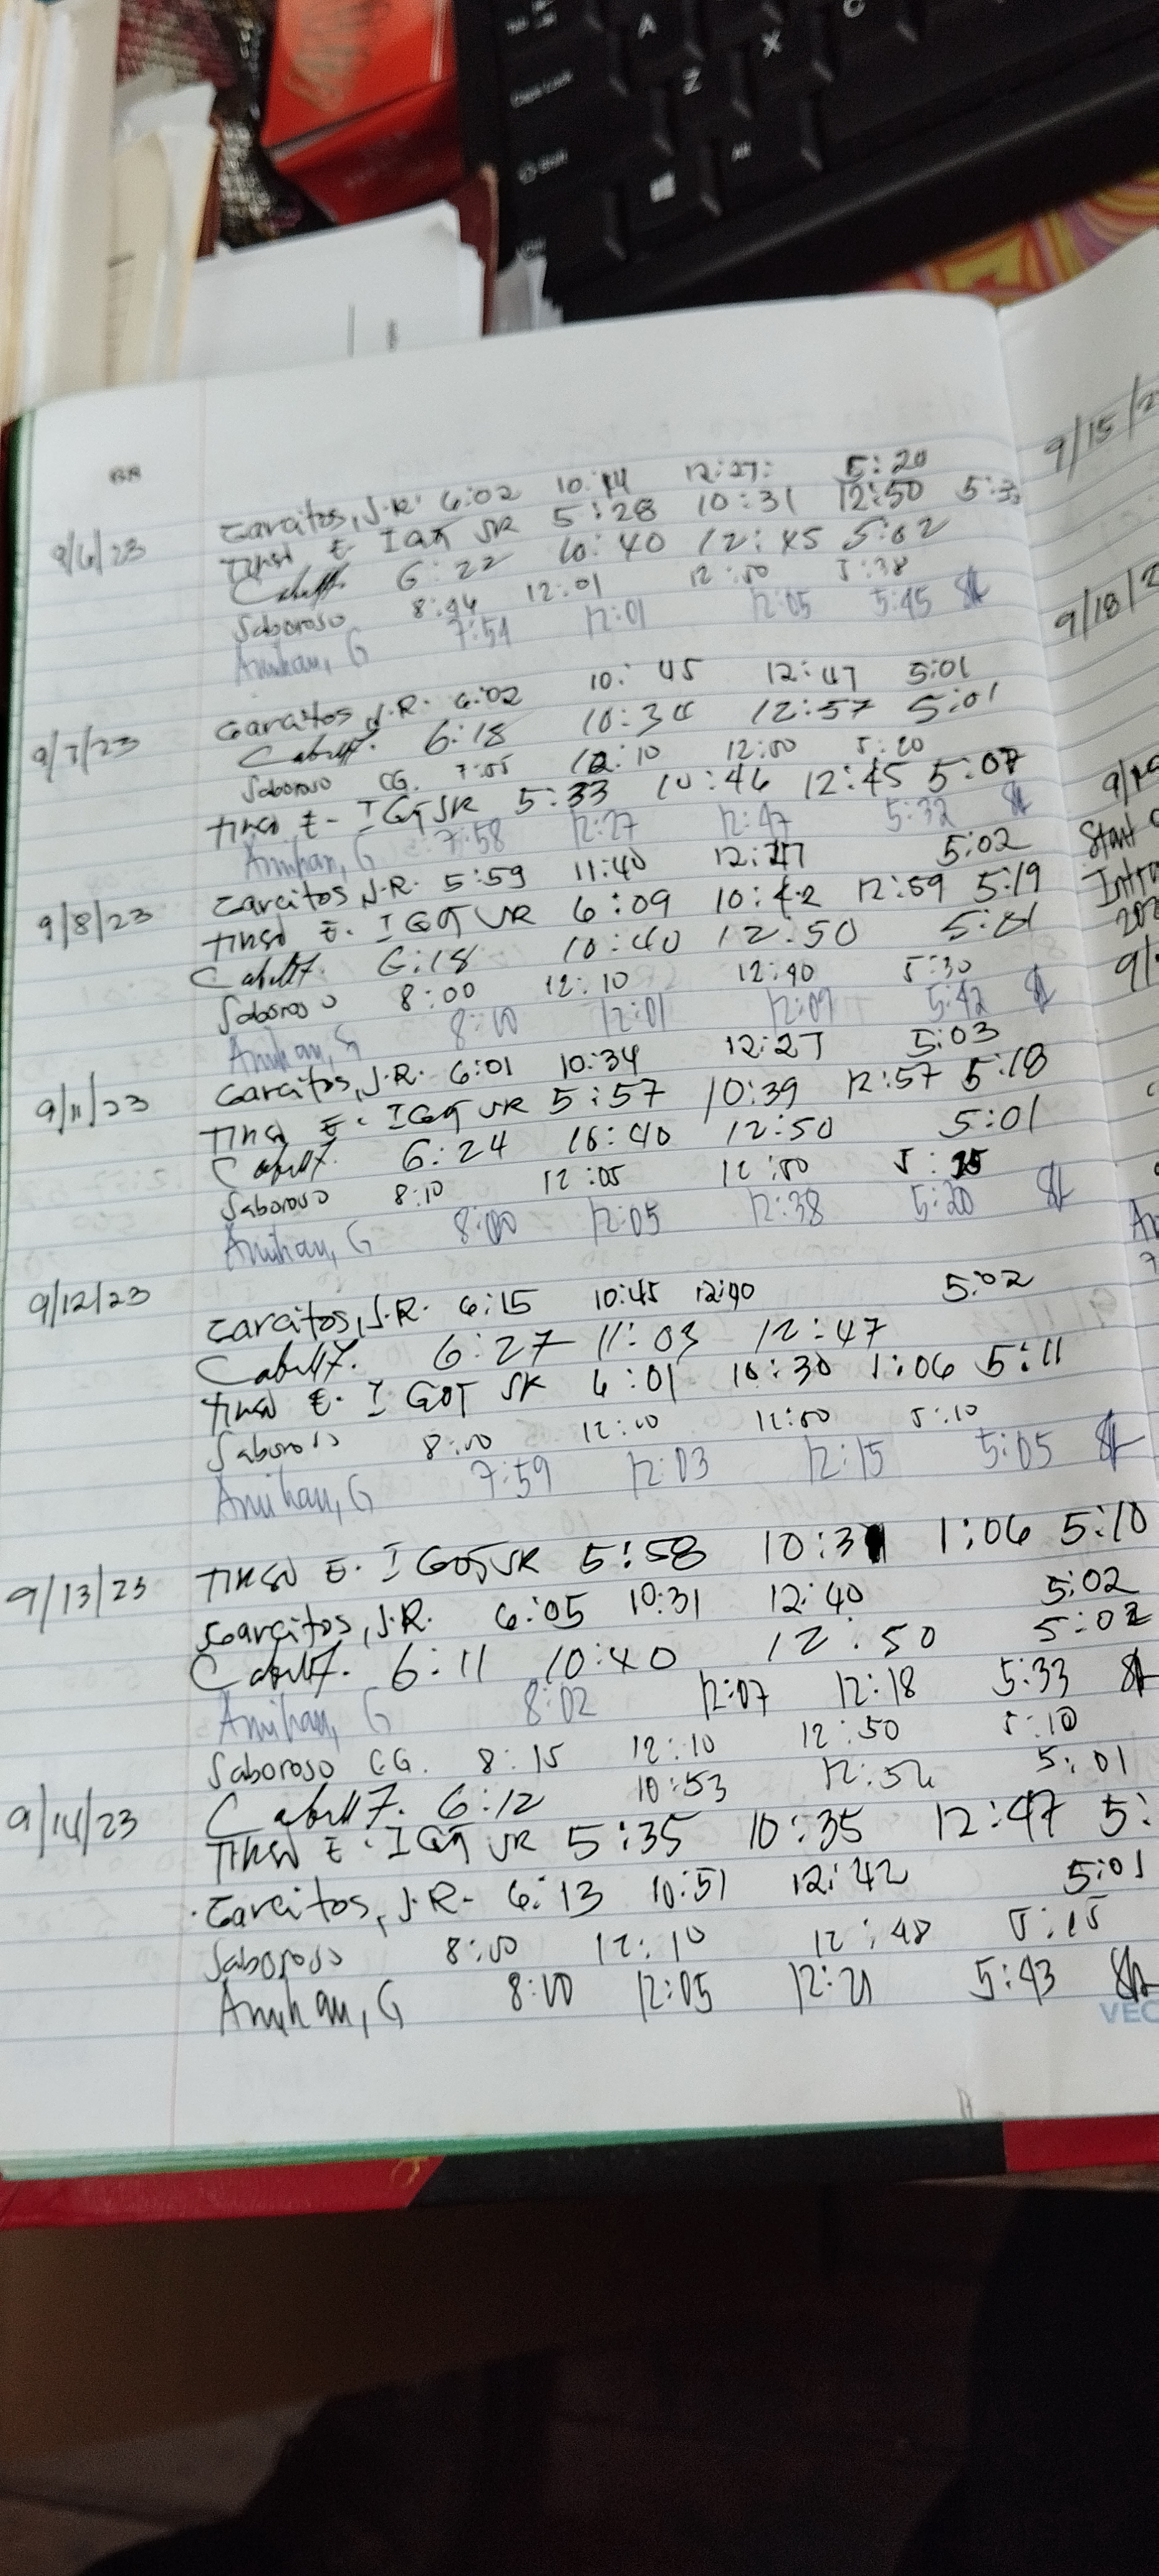 A
Z
X
C
Caps Lock
Alt
68
9/6/23 Garcitos, J.R. 6:02 10:14 12:27: 5:20
Tinso E. 5:28 10:31 12:50
6:22 10:40 12:45 5:02
Saboroso 8:44 12:01 12:50 5:38
Anihan, G 7:54 12:01 12:05 5:45
9/7/23 Garcitos, J.R. 6:02 10:45 12:47 5:01
6:18 10:34 12:57 5:01
Saboroso CG. 7:55 12:10 12:50 5:20
Tinso E. 5:33 10:46 12:45 5:07
Anihan, G 7:58 12:27 12:47 5:32
9/8/23 Garcitos, J.R. 5:59 11:40 5:02
Tinso E. 6:09 10:42 12:59 5:19
6:18 10:40 12:50 5:01
Saboroso 8:00 12:10 12:40 5:30
Anihan, G 8:00 12:01 12:09 5:42
9/11/23 Garcitos, J.R. 6:01 10:34 12:27 5:03
Tinso E. 5:57 10:39 12:57 5:18
6:24 10:40 12:50 5:01
Saboroso 8:10 12:05 12:50
Anihan, G 8:00 12:05 12:38 5:20
9/12/23 Garcitos, J.R. 6:15 10:45 12:40 5:02
6:27 11:03 12:47
Tinso E. 6:01 10:30 1:06 5:11
Saboroso 8:00 12:00 12:50 5:10
Anihan, G 7:59 12:03 12:15 5:05
9/13/23 Tinso E. 5:58 1:06 5:10
Garcitos, J.R. 6:05 10:31 12:40 5:02
6:11 10:40 12:50 5:02
Anihan, G 8:02 12:07 12:18 5:33
Saboroso CG. 8:15 12:10 12:50 5:10
9/14/23 6:12 10:53 12:54 5:01
Tinso E. 5:35 10:35 12:47 5:
Garcitos, J.R. 6:13 10:51 12:42 5:01
Saboroso 8:00 12:10 12:48 5:15
Anihan, G 8:00 12:05 12:21 5:43
VEC
9/15/2
9/18/2
9/19
Start
Intra
202
9/